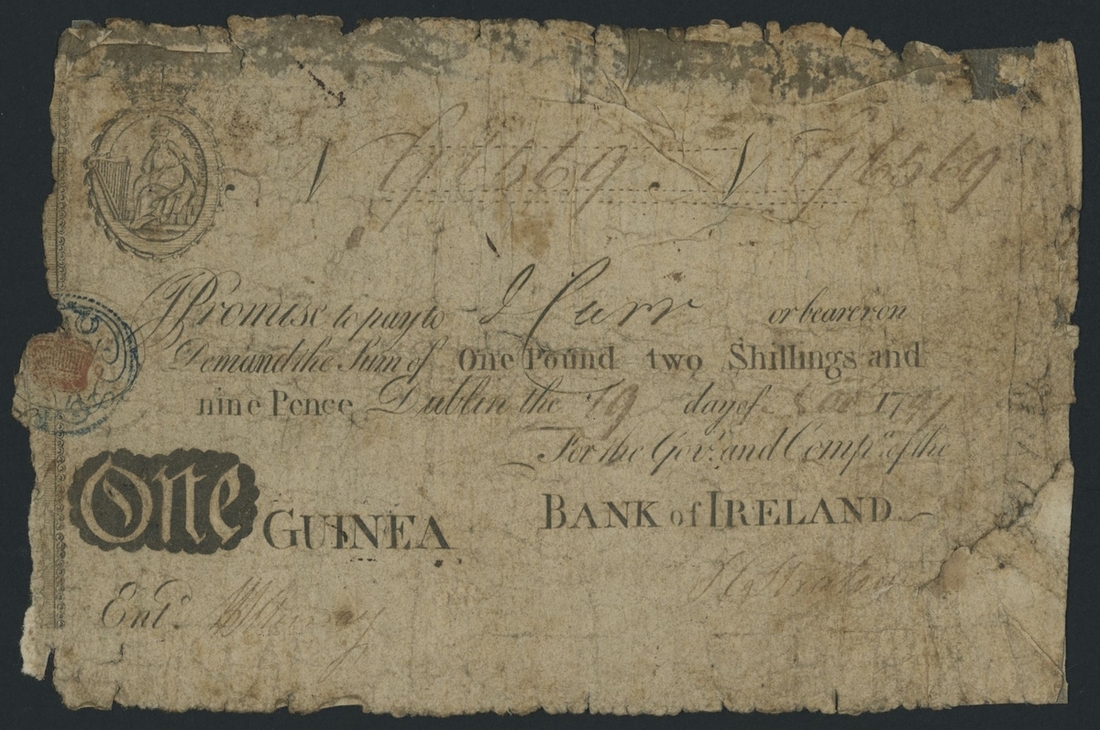 N 96569 . N 96569
I Promise to pay to J Carr or bearer on
Demand the Sum of One Pound two Shillings and
nine Pence Dublin the 19 day of 1797
For the Gov.r and Comp.a of the
One GUINEA BANK of IRELAND
Ent.d